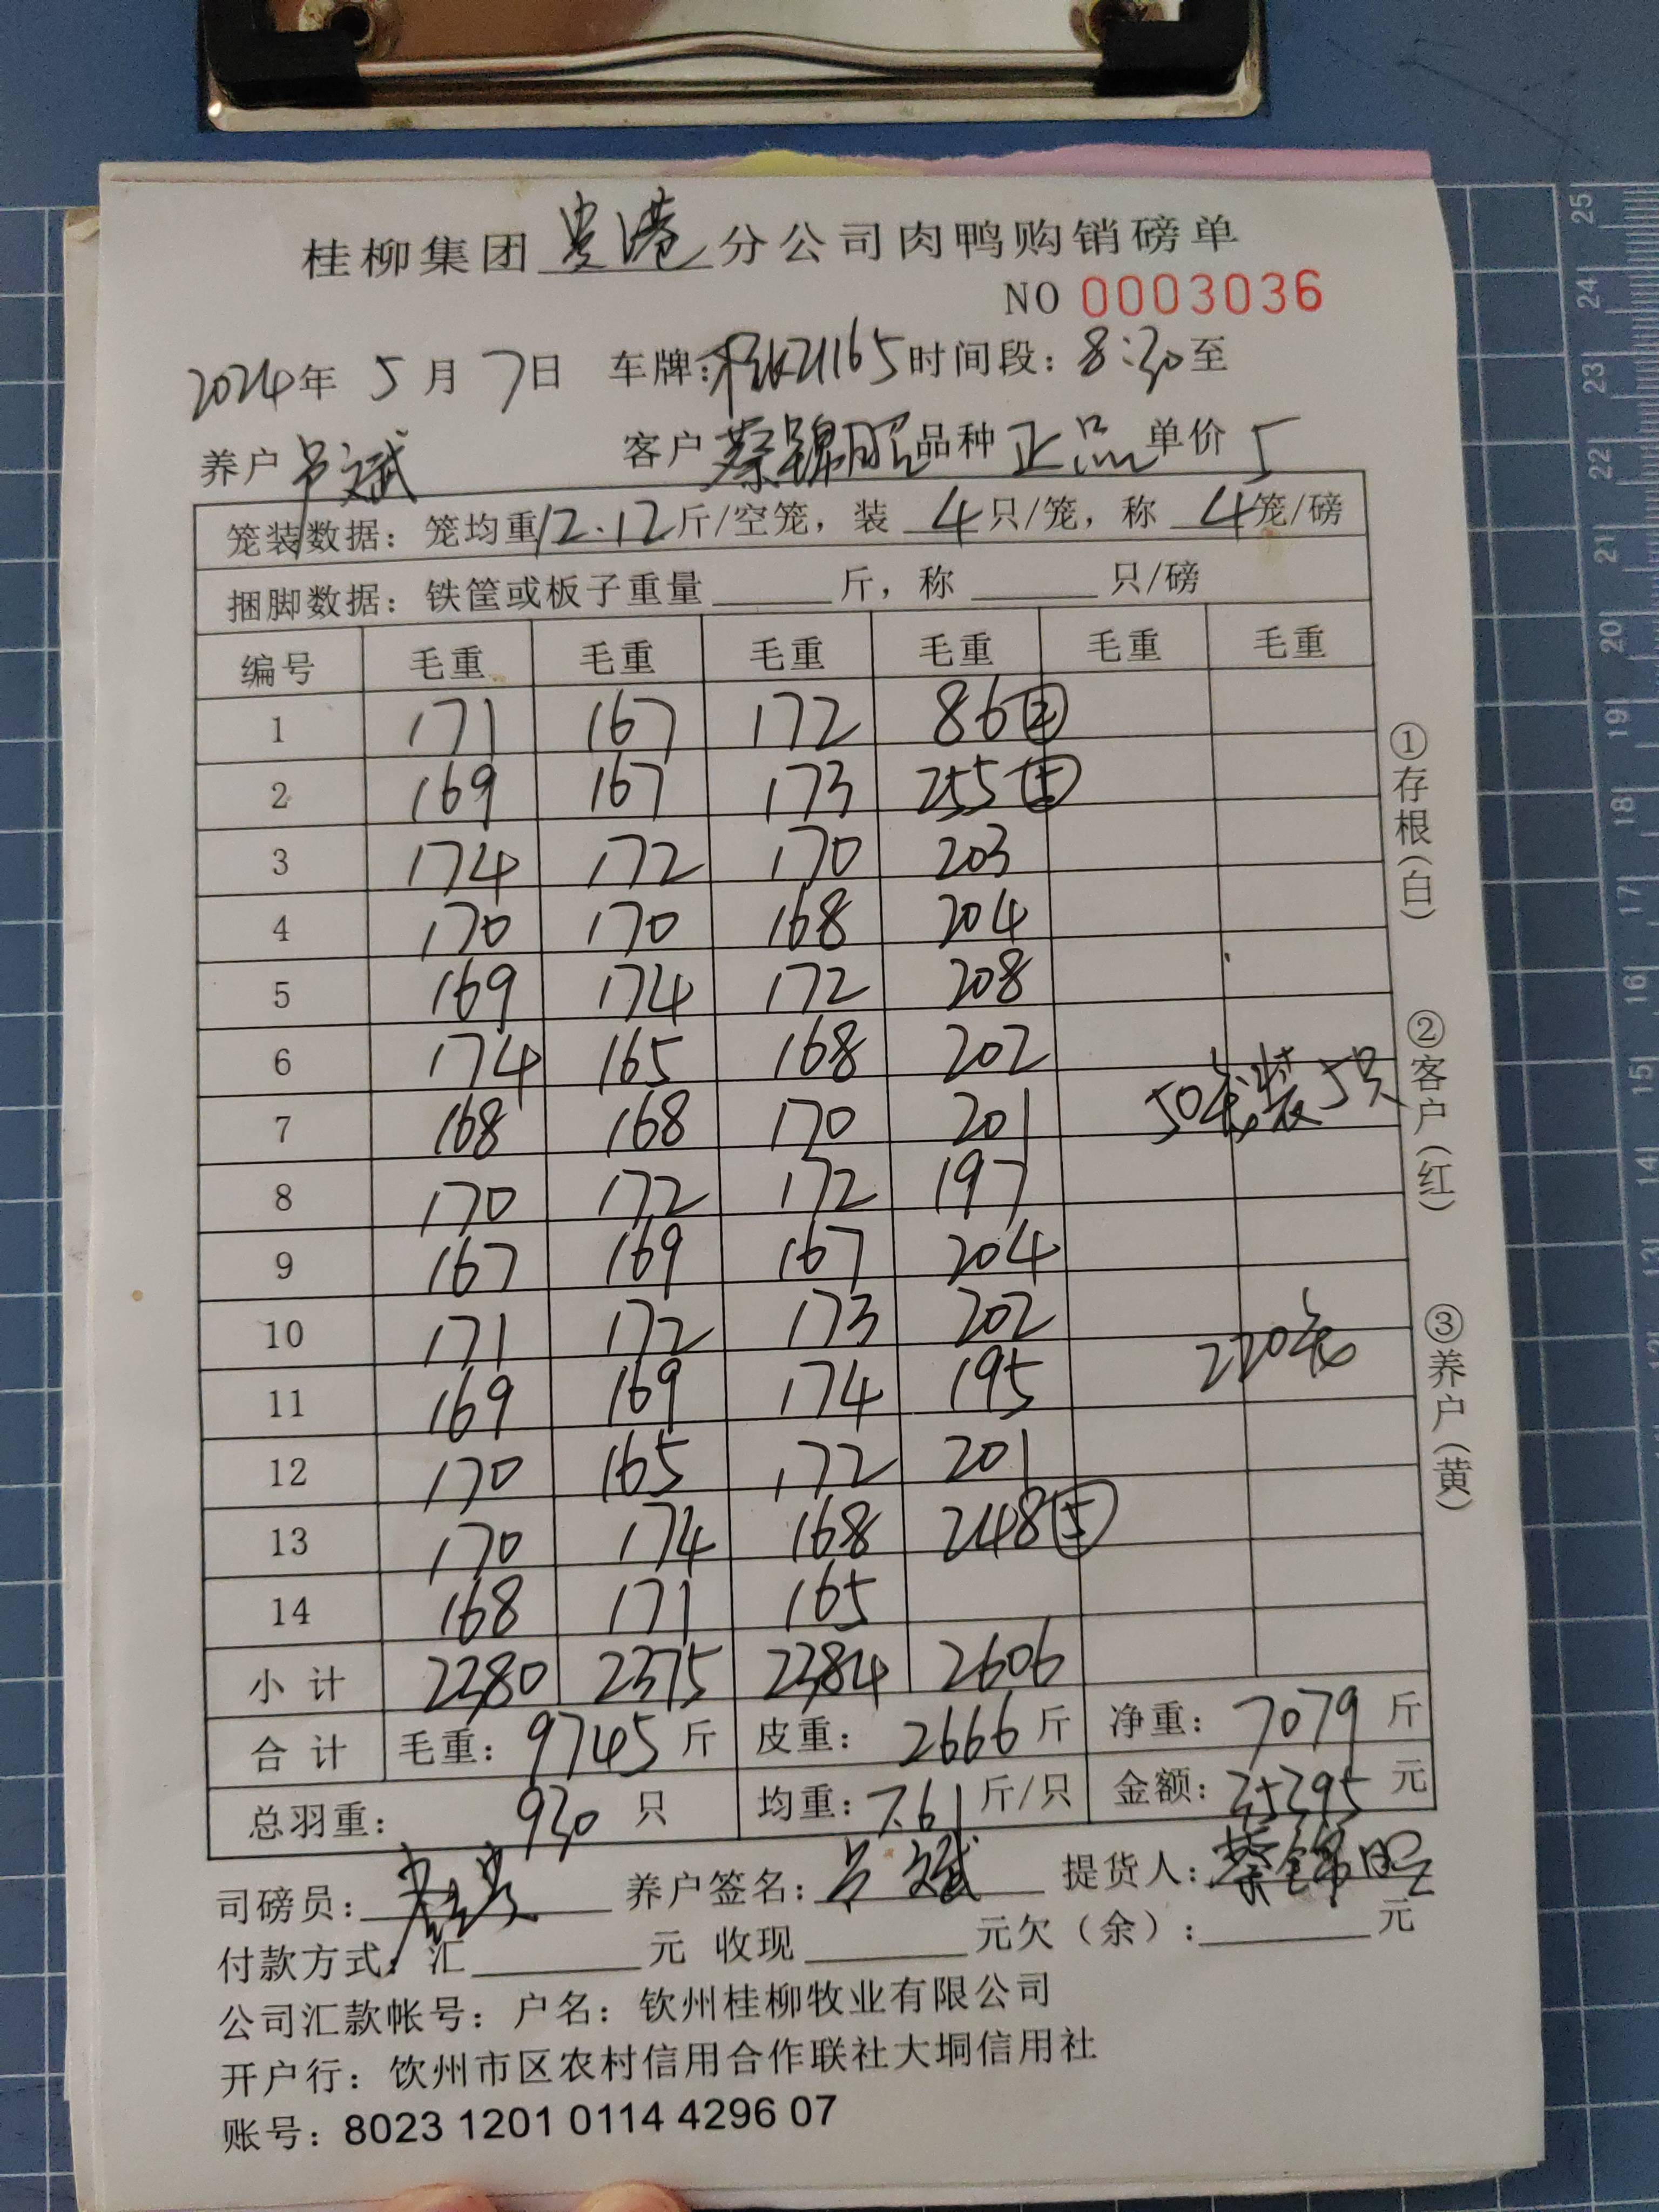 桂柳集团 贵港 分公司肉鸭购销磅单
NO 0003036
2024年 5 月 7日 车牌: 21165 时间段: 8:30至
养户 吕斌 客户 蔡锦昭 品种 正品 单价 5
笼装数据: 笼均重12.12斤/空笼, 装 4 只/笼, 称 4笼/磅
捆脚数据: 铁筐或板子重量 斤, 称 只/磅
编号 毛重 毛重 毛重 毛重 毛重 毛重
1 171 167 172 86②
2 169 167 173 255⑤
3 174 172 170 203
4 170 170 168 204
5 169 174 172 208
6 174 165 168 202
7 168 168 170 201 50笼装5只
8 170 172 172 197
9 167 169 167 204
10 171 172 173 202 220笼
11 169 169 174 195
12 170 165 172 201
13 170 174 168 248⑤
14 168 171 165
小计 2380 2375 2384 2606
合计 毛重: 9745 斤 皮重: 2666 斤 净重: 7079 斤
总羽重: 930 只 均重: 7.61 斤/只 金额: 35395 元
司磅员: 养户签名: 吕斌 提货人: 蔡锦昭
付款方式: 汇 元 收现 元欠(余): 元
公司汇款帐号: 户名: 钦州桂柳牧业有限公司
开户行: 钦州市区农村信用合作联社大垌信用社
账号: 8023 1201 0114 4296 07
①存根(白)
②客户(红)
③养户(黄)
25
24
23
22
21
20
19
18
17
16
15
14
13
12